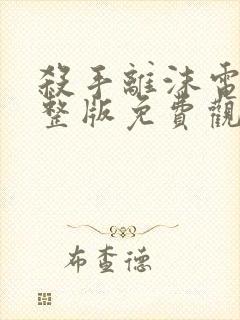 殺手離沫電
整版免費觀
布查德